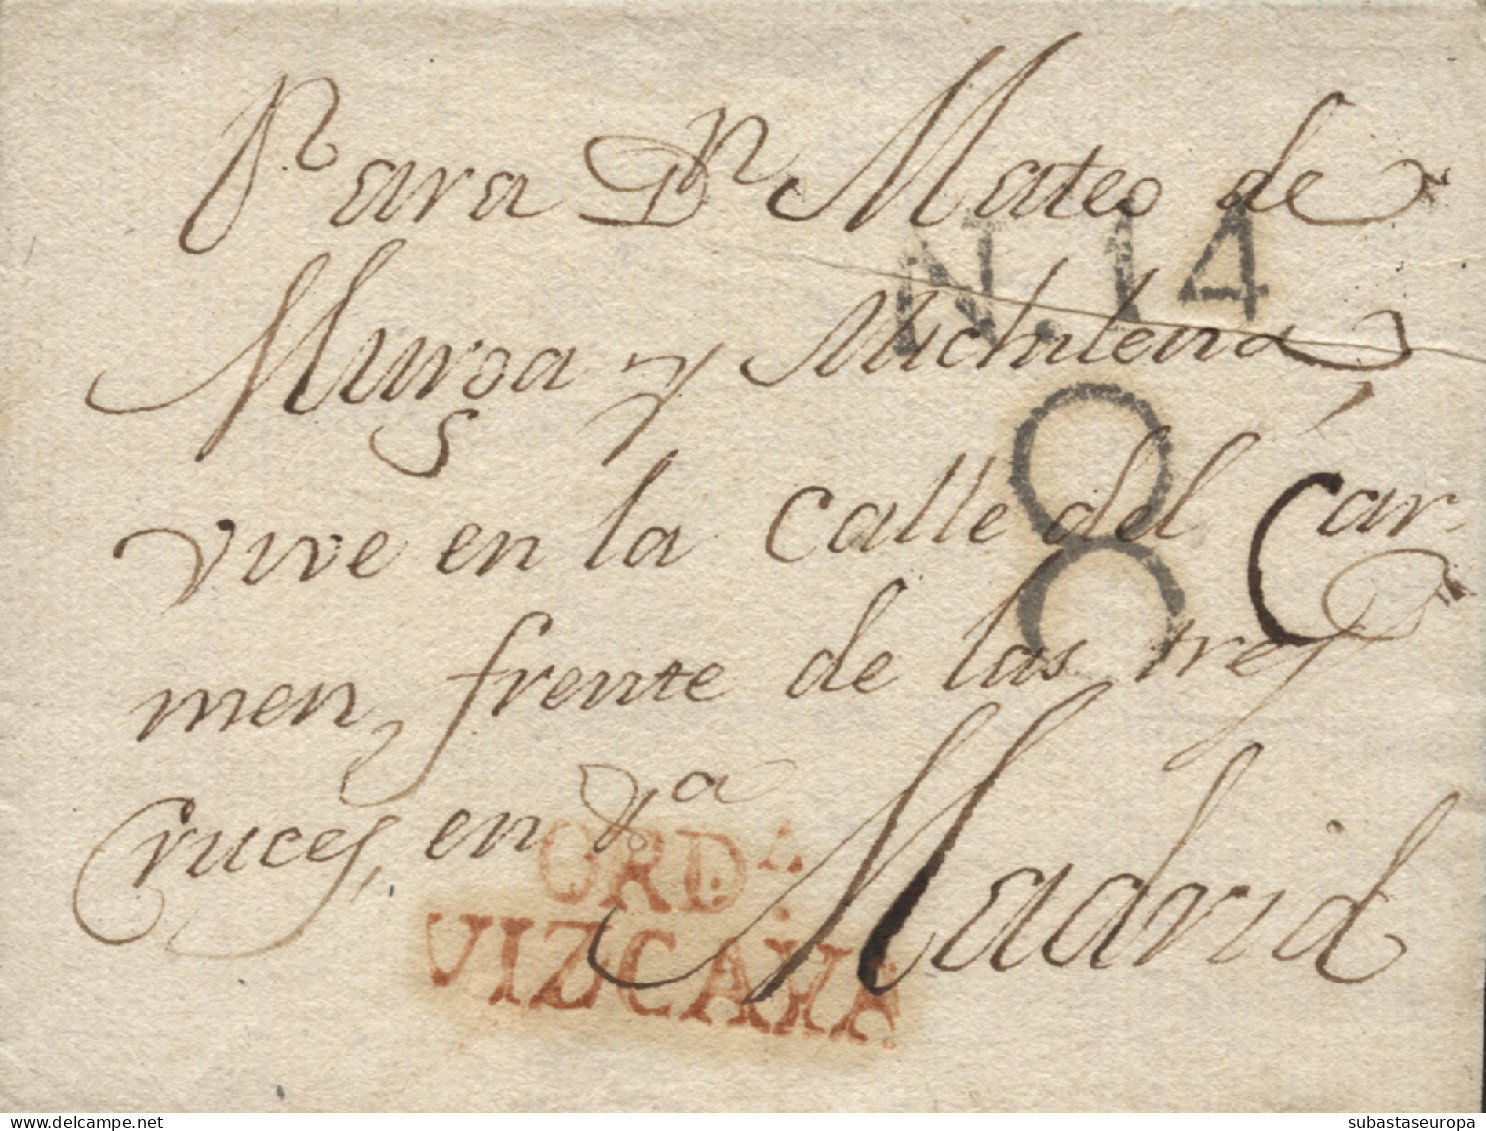 Para Dn Mateo de
N.14
Murga y Michilena
8
vive en la Calle del Car-
men, frente de las tres
Cruces, en
ORDA
VIZCAYA
Madrid
subastaseuropa